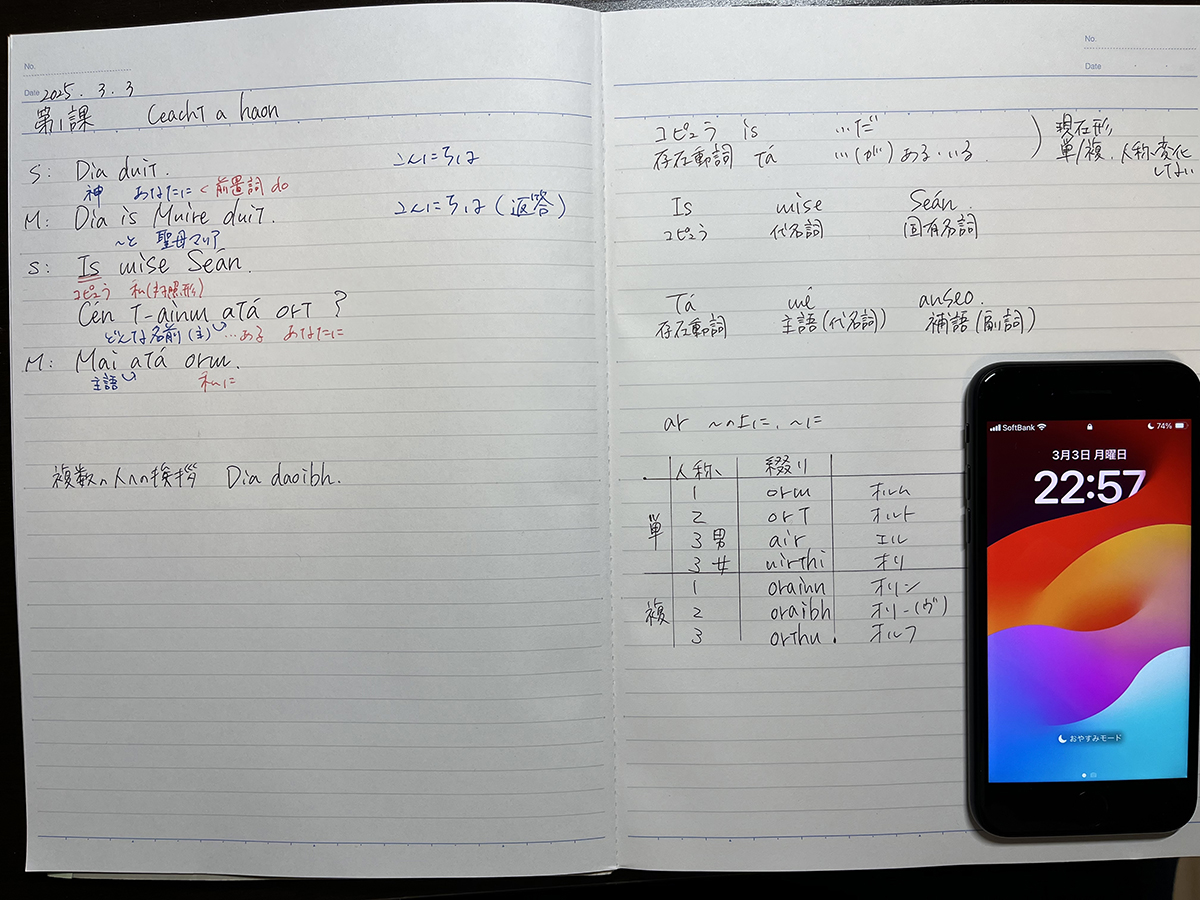 No.
Date 2025. 3. 3
第1課 Ceacht a haon
S: Dia duit. こんにちは
神 あなたに < 前置詞 do
M: Dia is Muire duit. こんにちは (返答)
〜と 聖母マリア
S: Is mise Seán.
コピュラ 私(対照形)
Cén t-ainm atá ort ?
どんな名前 (主) …ある あなたに
M: Mai atá orm.
主語 私に
複数の人への挨拶 Dia daoibh.
No.
Date
コピュラ is …だ
存在動詞 tá …(が) ある・いる
現在形
単/複、人称変化
してない
Is mise Seán.
コピュラ 代名詞 固有名詞
Tá mé anseo.
存在動詞 主語(代名詞) 補語(副詞)
ar 〜の上に、〜に
人称 綴り
単
1 orm オルム
2 ort オルト
3 男 air エル
3 女 uirthi オリ
複
1 orainn オリン
2 oraibh オリー(ヴ)
3 orthu オルフ
SoftBank 74%
3月3日 月曜日
22:57
おやすみモード